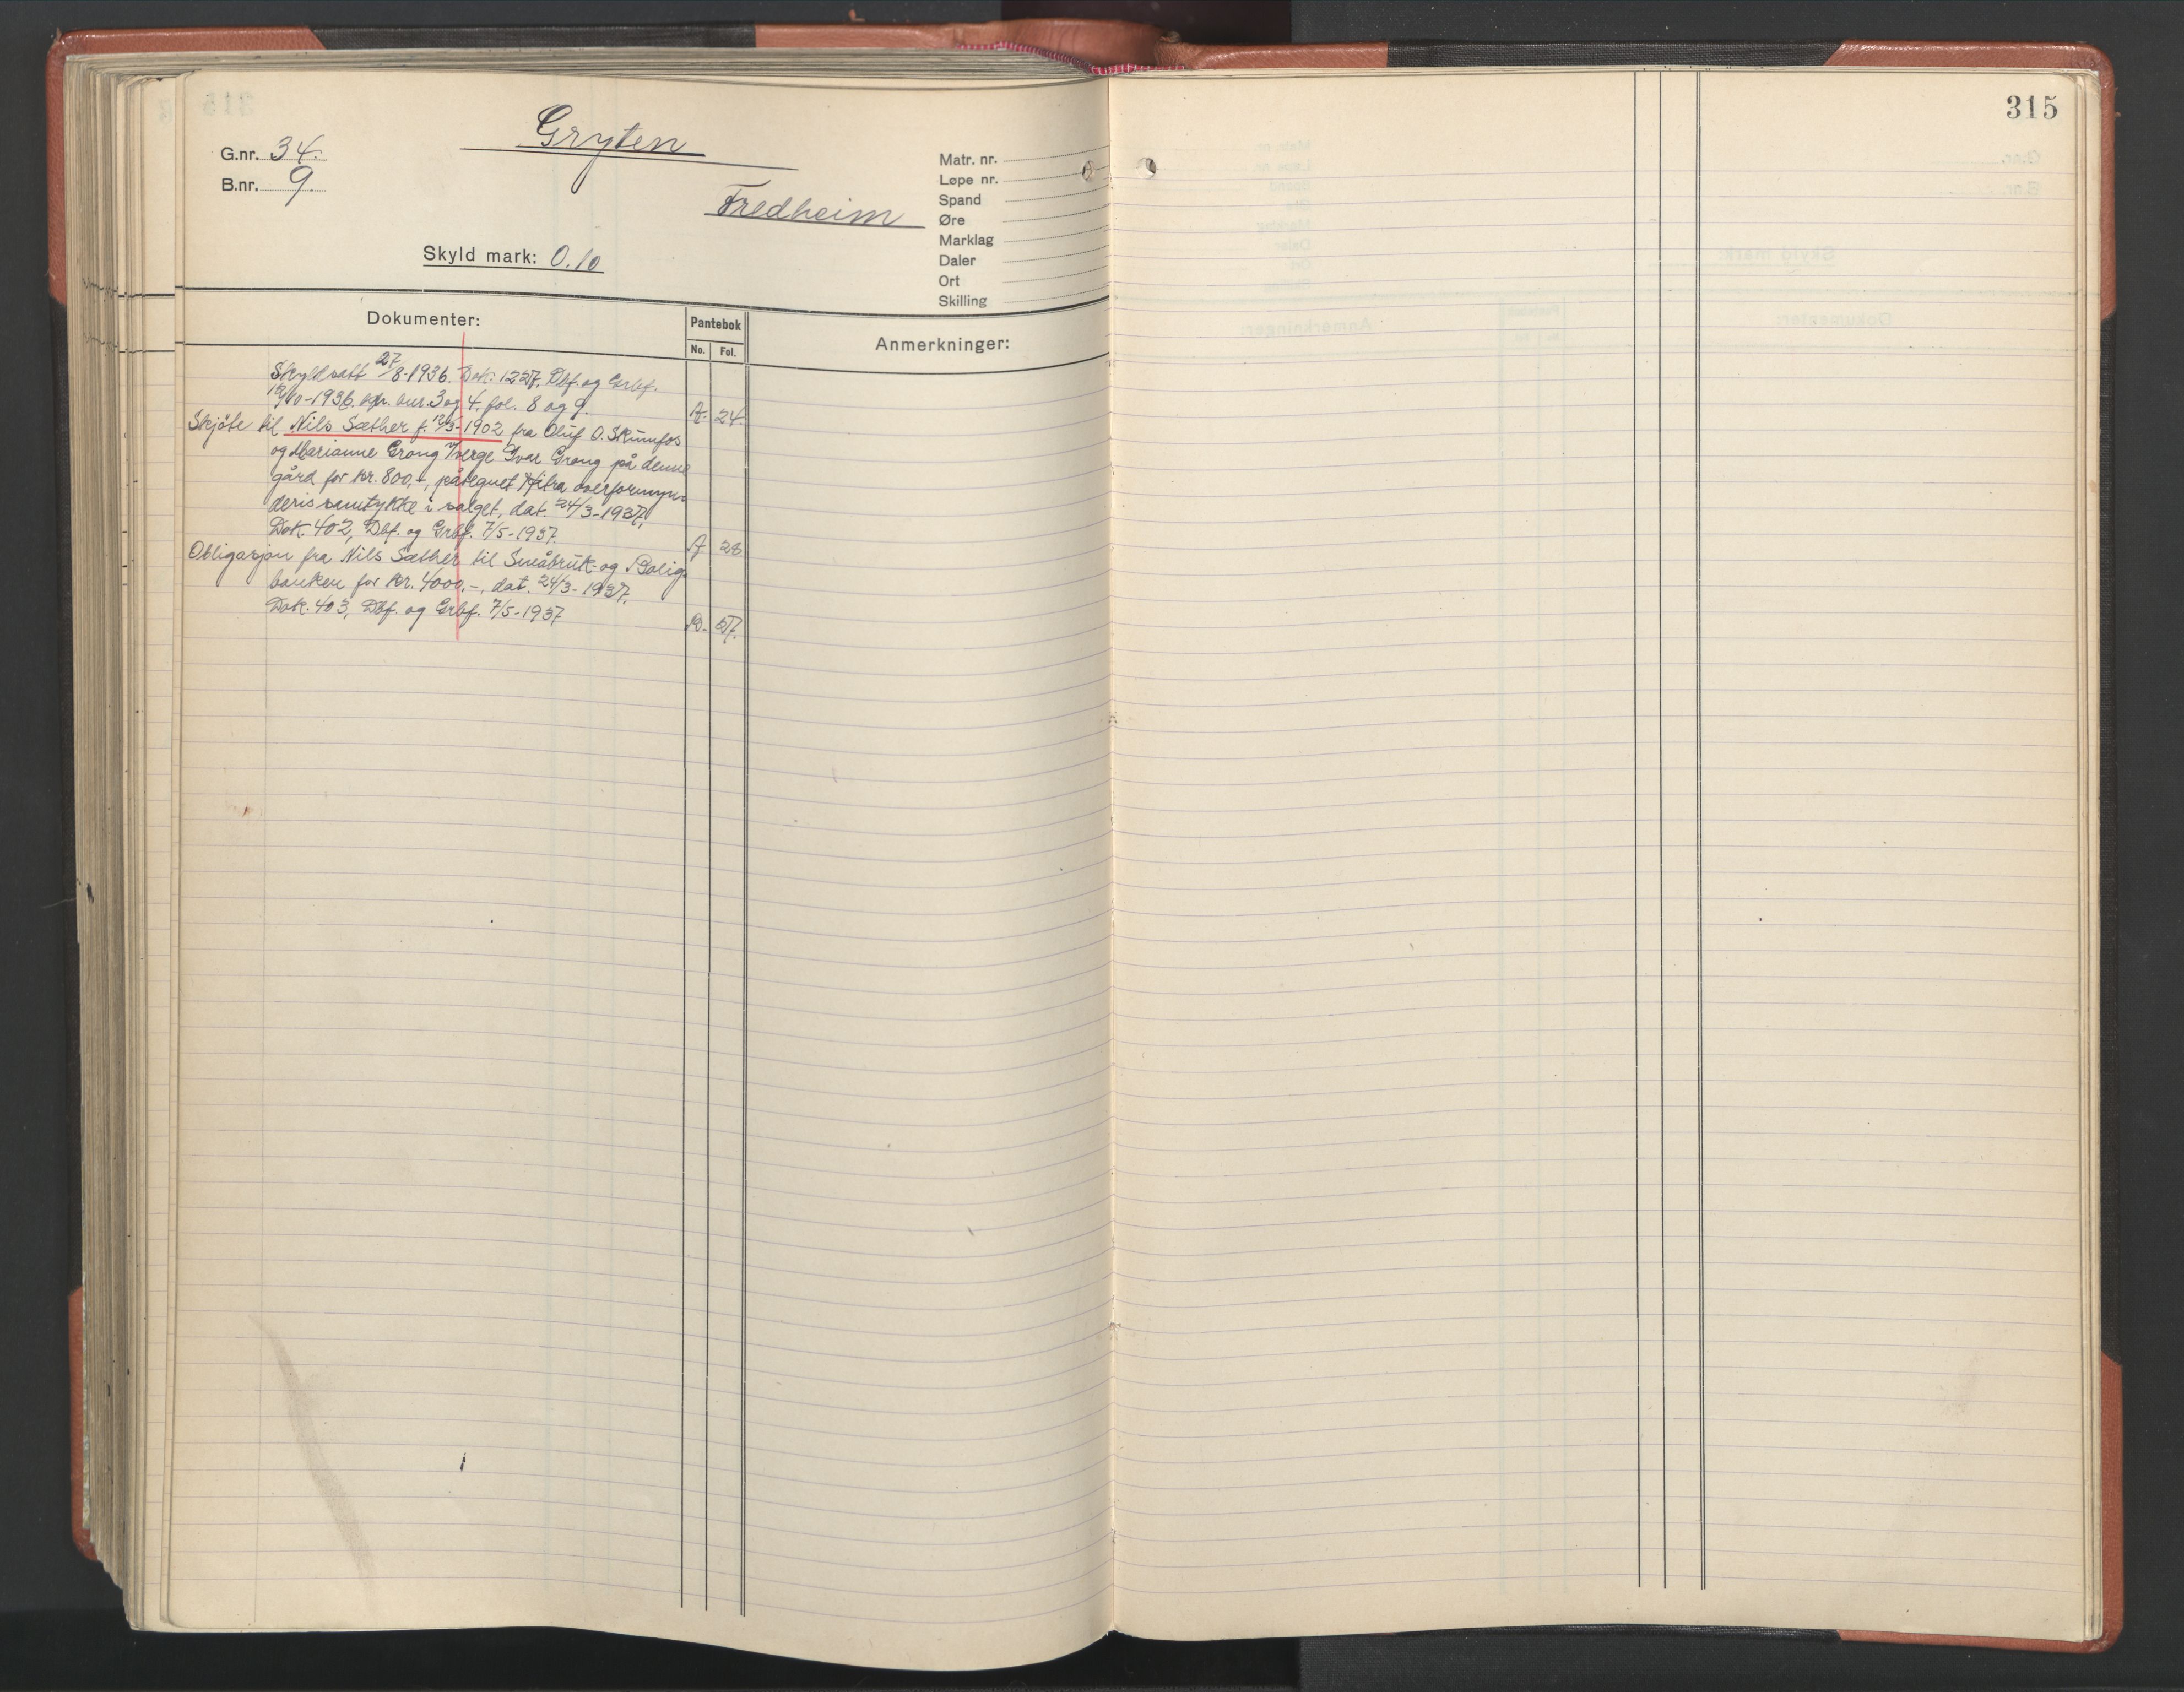 315
Gryten
G.nr. 34.
B.nr. 9.
Fredheim
Skyld mark: 0.10
Matr. nr.
Løpe nr.
Spand
Øre
Marklag
Daler
Ort
Skilling
Dokumenter:
Pantebok
No. Fol.
Anmerkninger:
Skyldsatt 27/8-1936. Dok. 1227, Dbf. og Grbf.
/10-1936. bnr. 3 og 4, fol. 8 og 9. A. 24.
Skjöte til Nils Sæther f. 12/3-1902 fra Oluf O. Skumfos
og Marianne Grong v/verge Ivar Grong på denne
gård for kr. 800,-, påtegnet Hitra overformyn=
deris samtykke i salget, dat. 24/3-1937,
Dok. 402, Dbf. og Grbf. 7/5-1937. A 28
Obligasjon fra Nils Sæther til Småbruk- og Bolig-
banken for kr. 4000,-, dat. 24/3-1937,
Dok. 403, Dbf. og Grbf. 7/5-1937 B. 57.